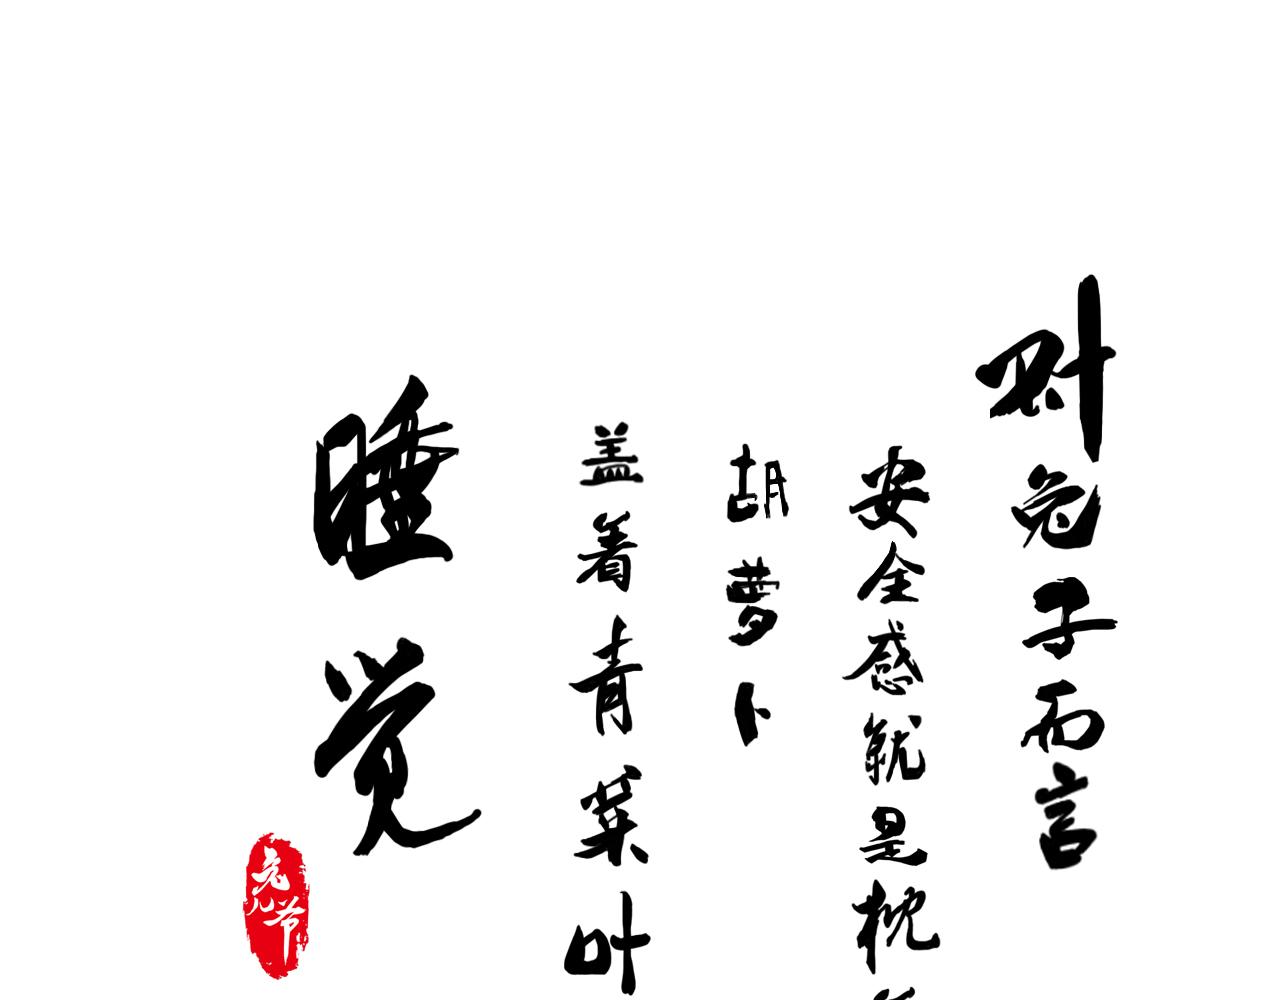 对兔子而言
安全感就是枕
胡萝卜
盖着青菜叶
睡觉